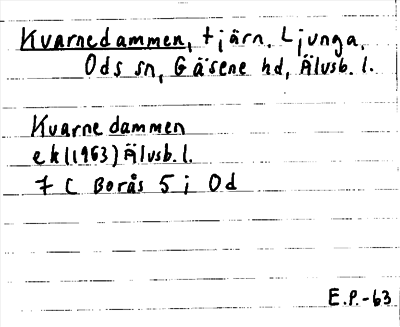 Kvarnedammen, tjärn. Ljunga,
Ods sn, Gäsene hd, Älvsb. l.
Kvarnedammen
ek (1963) Älvsb. l.
7 C Borås 5 j Od
E.P.-63